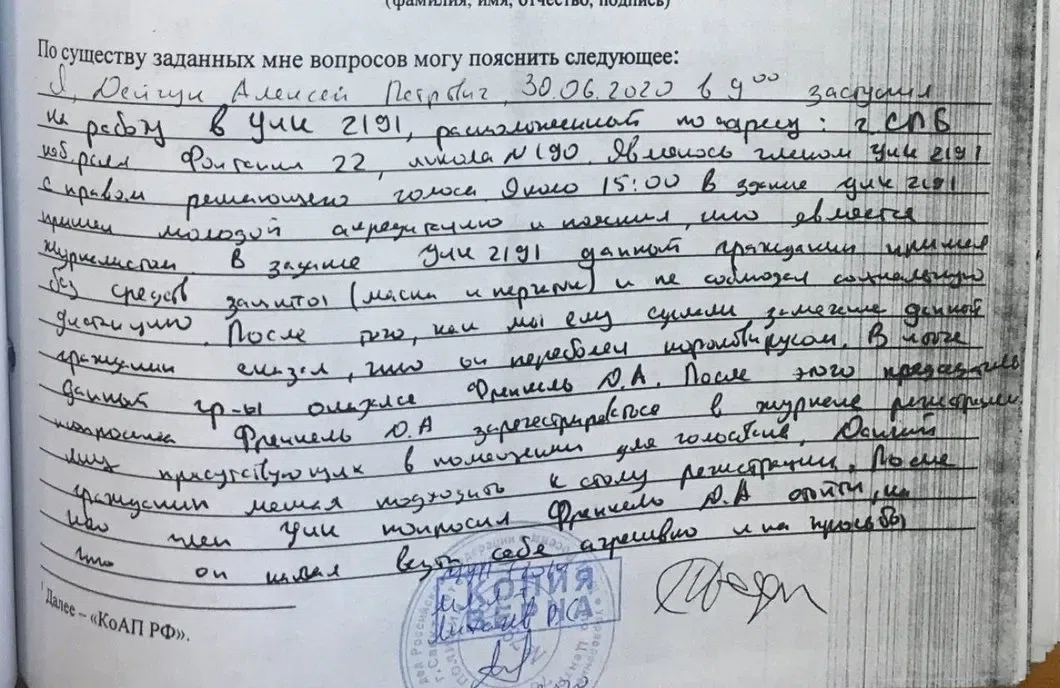 (фамилия, имя, отчество, подпись)
По существу заданных мне вопросов могу пояснить следующее:
Я, Дейгун Алексей Петрович, 30.06.2020 в 9 00 заступил
на работу в УИК 2191, расположенной по адресу: г. СПБ
наб. реки Фонтанки 22, школа №190. Являюсь членом УИК 2191
с правом решающего голоса. Около 15:00 в здание УИК 2191
пришел молодой и пояснил, что является
журналистом, в здание УИК 2191 данный гражданин пришел
без средств защиты (маски и перчатки) и не соблюдал социальную
дистанцию. После того, как мы ему сделали замечание данный
гражданин сказал, что он переболел короновирусом. В
данный гр-н оказался Френкель Д.А. После этого председатель
попросила Френкель Д.А зарегистрироваться в журнале регистрации
лиц присутствующих в помещении для голосования. Данный
гражданин мешал подходить к столу регистрации. После
член УИК попросил Френкель Д.А отойти, на
что он начал вести себя агресивно и на просьбы
1 Далее – «КоАП РФ».
КОПИЯ
ВЕРНА